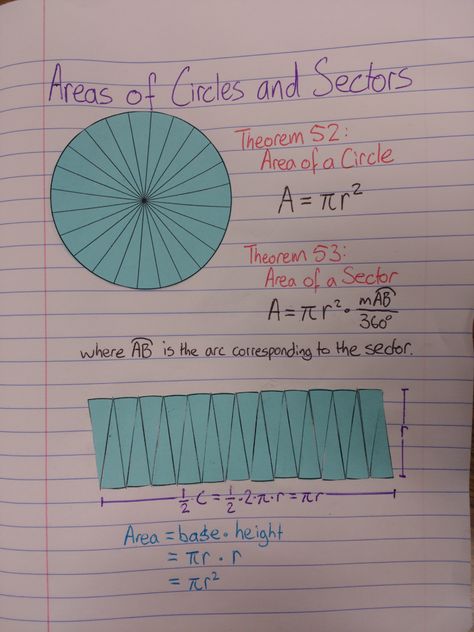 Areas of Circles and Sectors
Theorem 52:
Area of a Circle
A = πr²
Theorem 53:
Area of a Sector
A = πr² · mA͡B/360°
where A͡B is the arc corresponding to the sector.
r
½ · C = ½ · 2 · π · r = πr
Area = base · height
= πr · r
= πr²